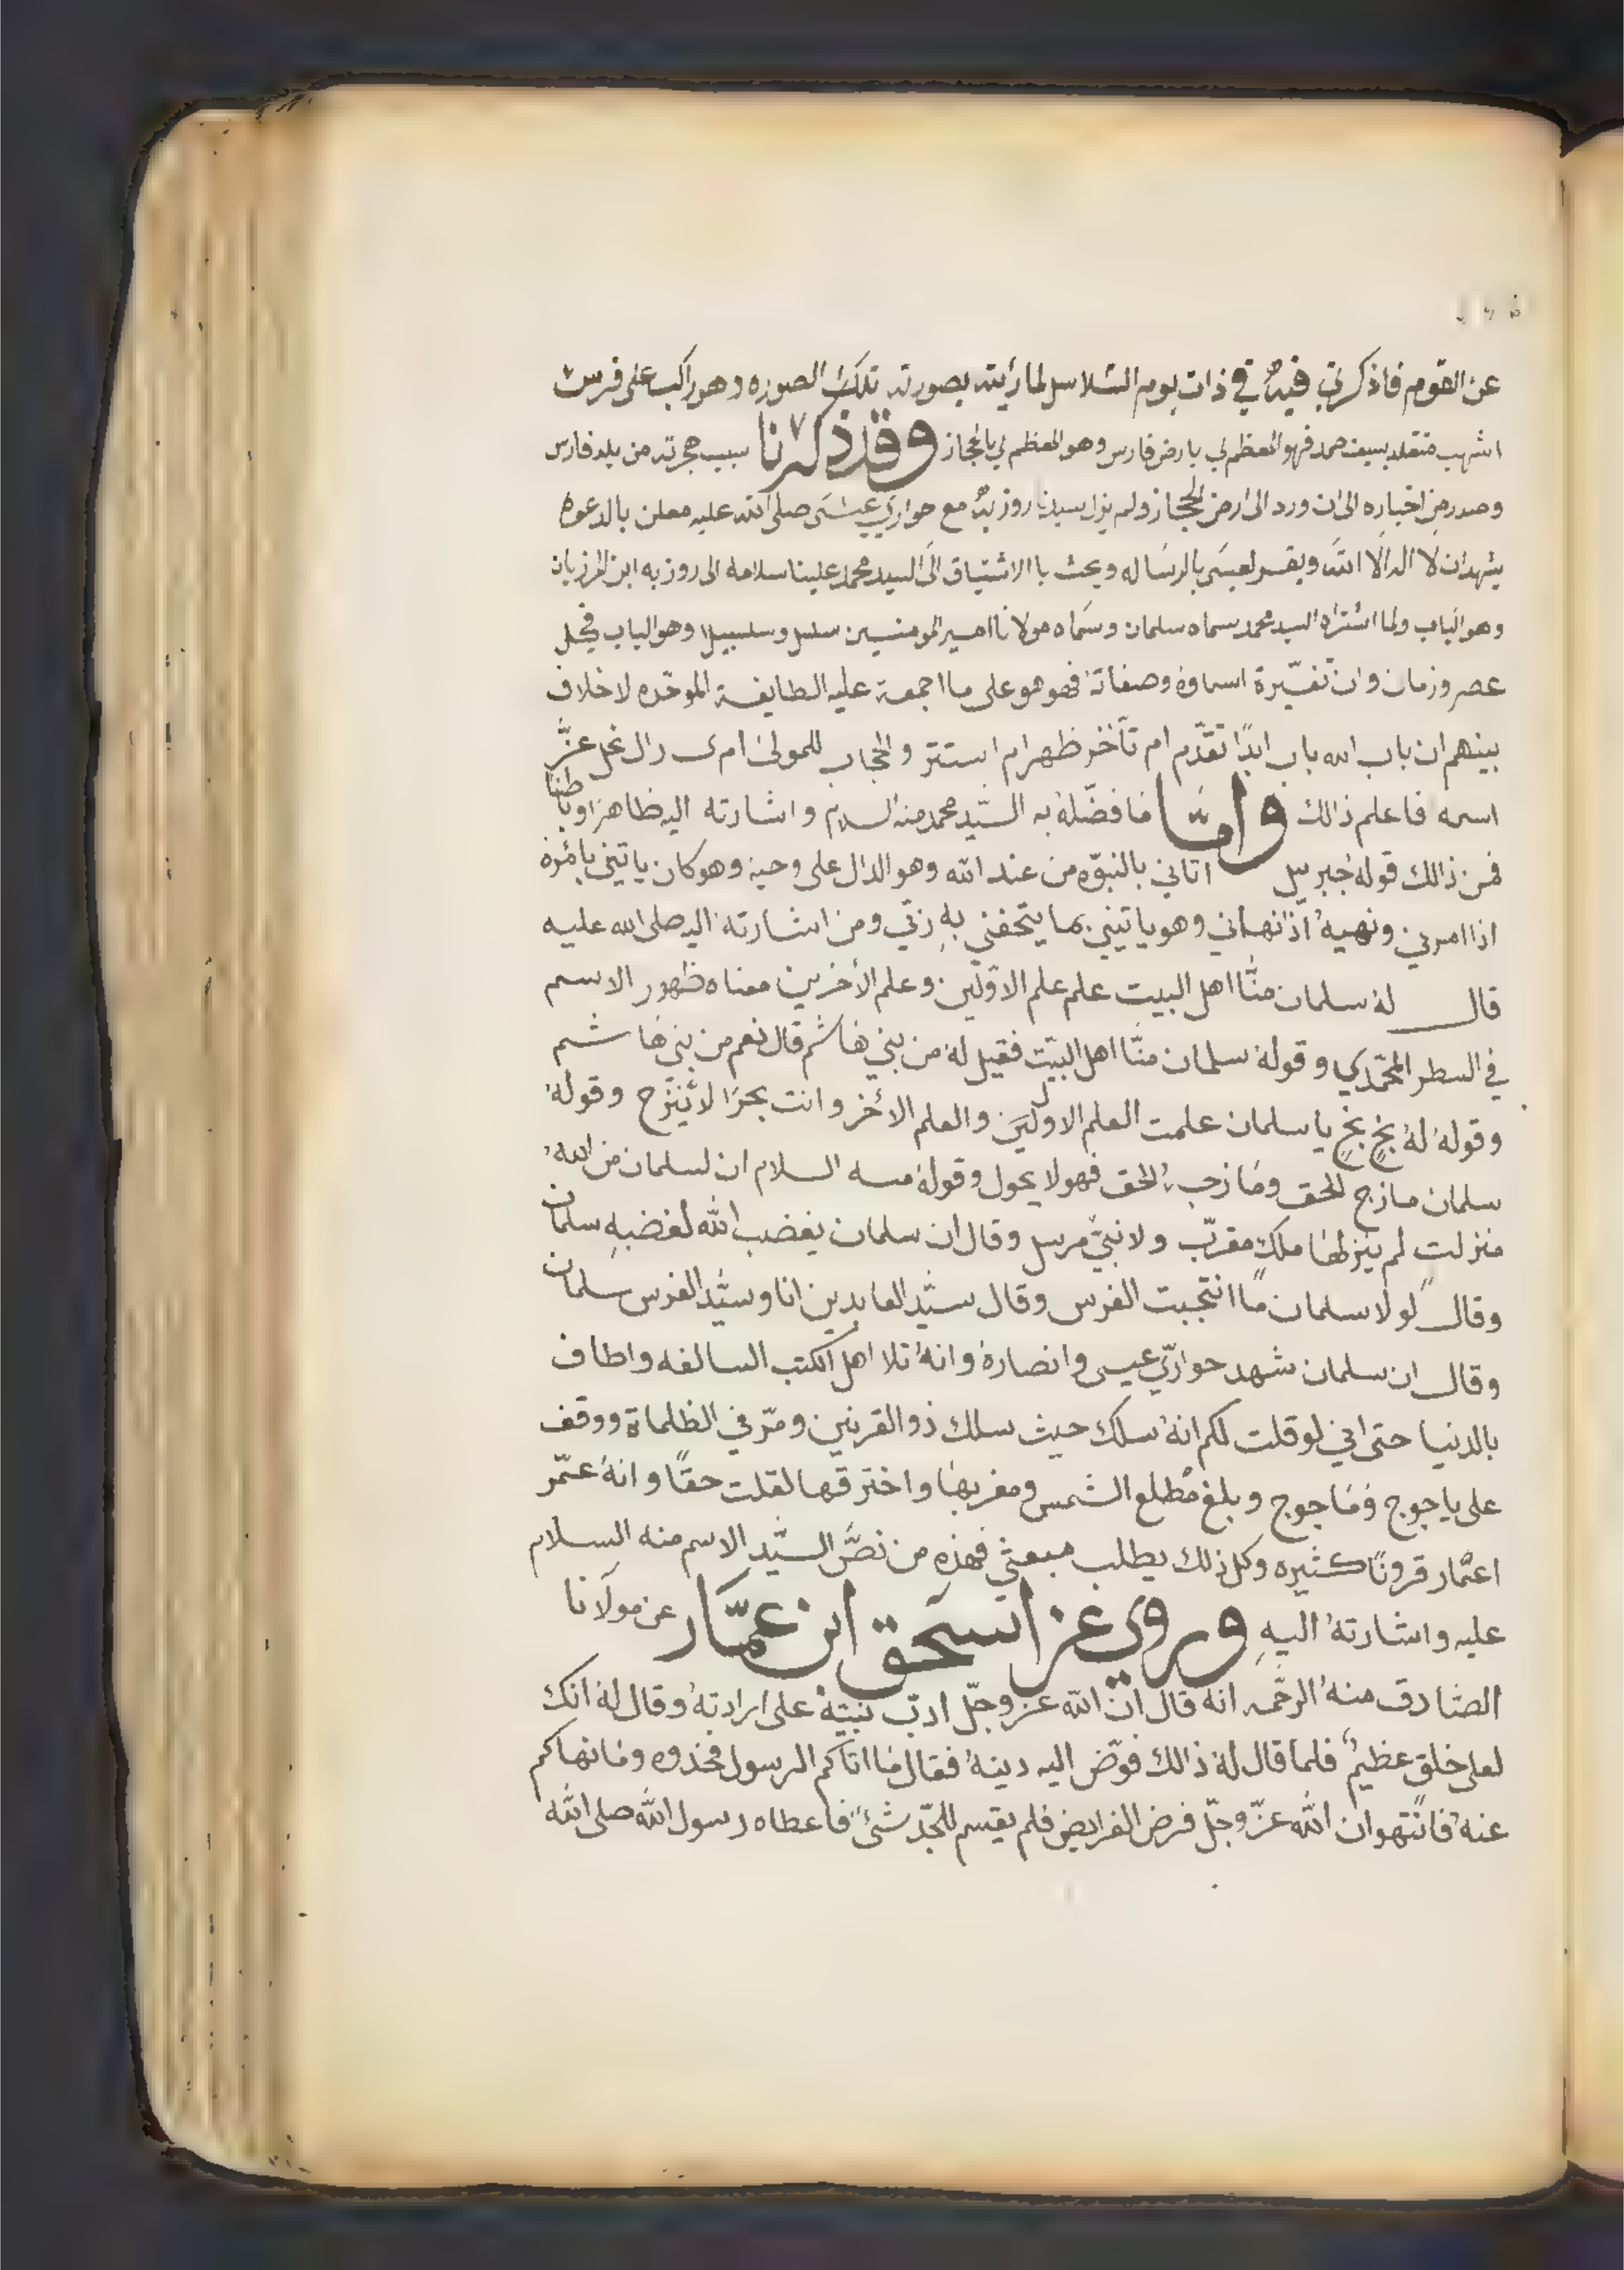 عن القوم فاذكرني فيه في ذات يوم السلاسل لما رأيته بصورته تلك الصوره وهو راكب على فرس
اشهب متقلد بسيف فهو المعظم لي بارض فارس وهو المعظم لي بالحجاز وقد ذكرنا سبب هجرته من بلد فارس
وصدر من اخباره الى ان ورد الى ارض الحجاز ولم يزل سيدنا روزبه مع حواري عيسى صلى الله عليه معلن بالدعوه
يشهد ان لا اله الا الله ويقر لعيسى بالرساله ويحث بالاشتياق الى السيد محمد علينا سلامه الى روزبه ابن المرزبان
وهو الباب ولما اشتراه السيد محمد سماه سلمان وسماه مولانا امير المومنين سلسل وسلسبيل وهو الباب في كل
عصر وزمان وان تغيّرة اسماوه وصفاته فهو هو على ما اجمعة عليه الطايفة الموحّده لا خلاف
بينهم ان باب الله باب ابدًا تقدّم ام تأخر ظهر ام استتر والحجاب للمولى عزّ
اسمه فاعلم ذالك وامّا ما فضّله به السّيد محمد منه السلام واشارته اليه ظاهرًا وباطنا
فمن ذالك قوله جبريل اتاني بالنبوّه من عند الله وهو الدال على وحيه وهو كان ياتيني بامره
اذا امرني ونهيه اذ نهاني وهو ياتيني بما يتحفني به ربّي ومن اشارته اليه صلى الله عليه
قال له سلمان منّا اهل البيت علم علم الاوّلين وعلم الأخرين معناه ظهور الاسم
في السطر المحمّدي وقوله سلمان منّا اهل البيت فقيل له من بني هاشم قال نعم من بني هاشم
وقوله له بخٍ بخٍ يا سلمان علمت العلم الاولين والعلم الأخر وانت بحرًا لا يُنزح وقوله
سلمان مازج الحق ومازجه الحق فهو لا يحول وقوله منه السلام ان لسلمان من الله
منزلت لم ينزلها ملك مقرّب ولا نبيّ مرسل وقال ان سلمان يغضب الله لغضبه سلمان
وقال لولا سلمان ما انتجبت الفرس وقال سيّد العابدين انا وسيّد الفرس سلمان
وقال ان سلمان شهد حواريّ عيسى وانصاره وانه تلا اهل الكتب السالفه واطاف
بالدنيا حتى اني لو قلت لكم انه سلك حيث سلك ذو القرنين ومرّ في الظلماة ووقف
على ياجوج وماجوج وبلغ مطلع الشمس ومغربها واخترقها لقلت حقًا وانه عمّر
اعمّار قرونًا كثيره وكل ذلك يطلب مبعثي فهذه من نصّ السّيد الاسم منه السلام
عليه واشارته اليه وروي عن اسحق ابن عمّار عن مولانا
الصّادق منه الرحمه انه قال ان الله عز وجلّ ادبّ نبيّه على ارادته وقال له انك
لعلى خلق عظيم فلما قال له ذالك فوّض اليه دينه فقال ما اتاكم الرسول فخذوه وما نهاكم
عنه فانتهو ان الله عزّ وجلّ فرض الفرايض فلم يقسم للجّد شئ فاعطاه رسول الله صلى الله